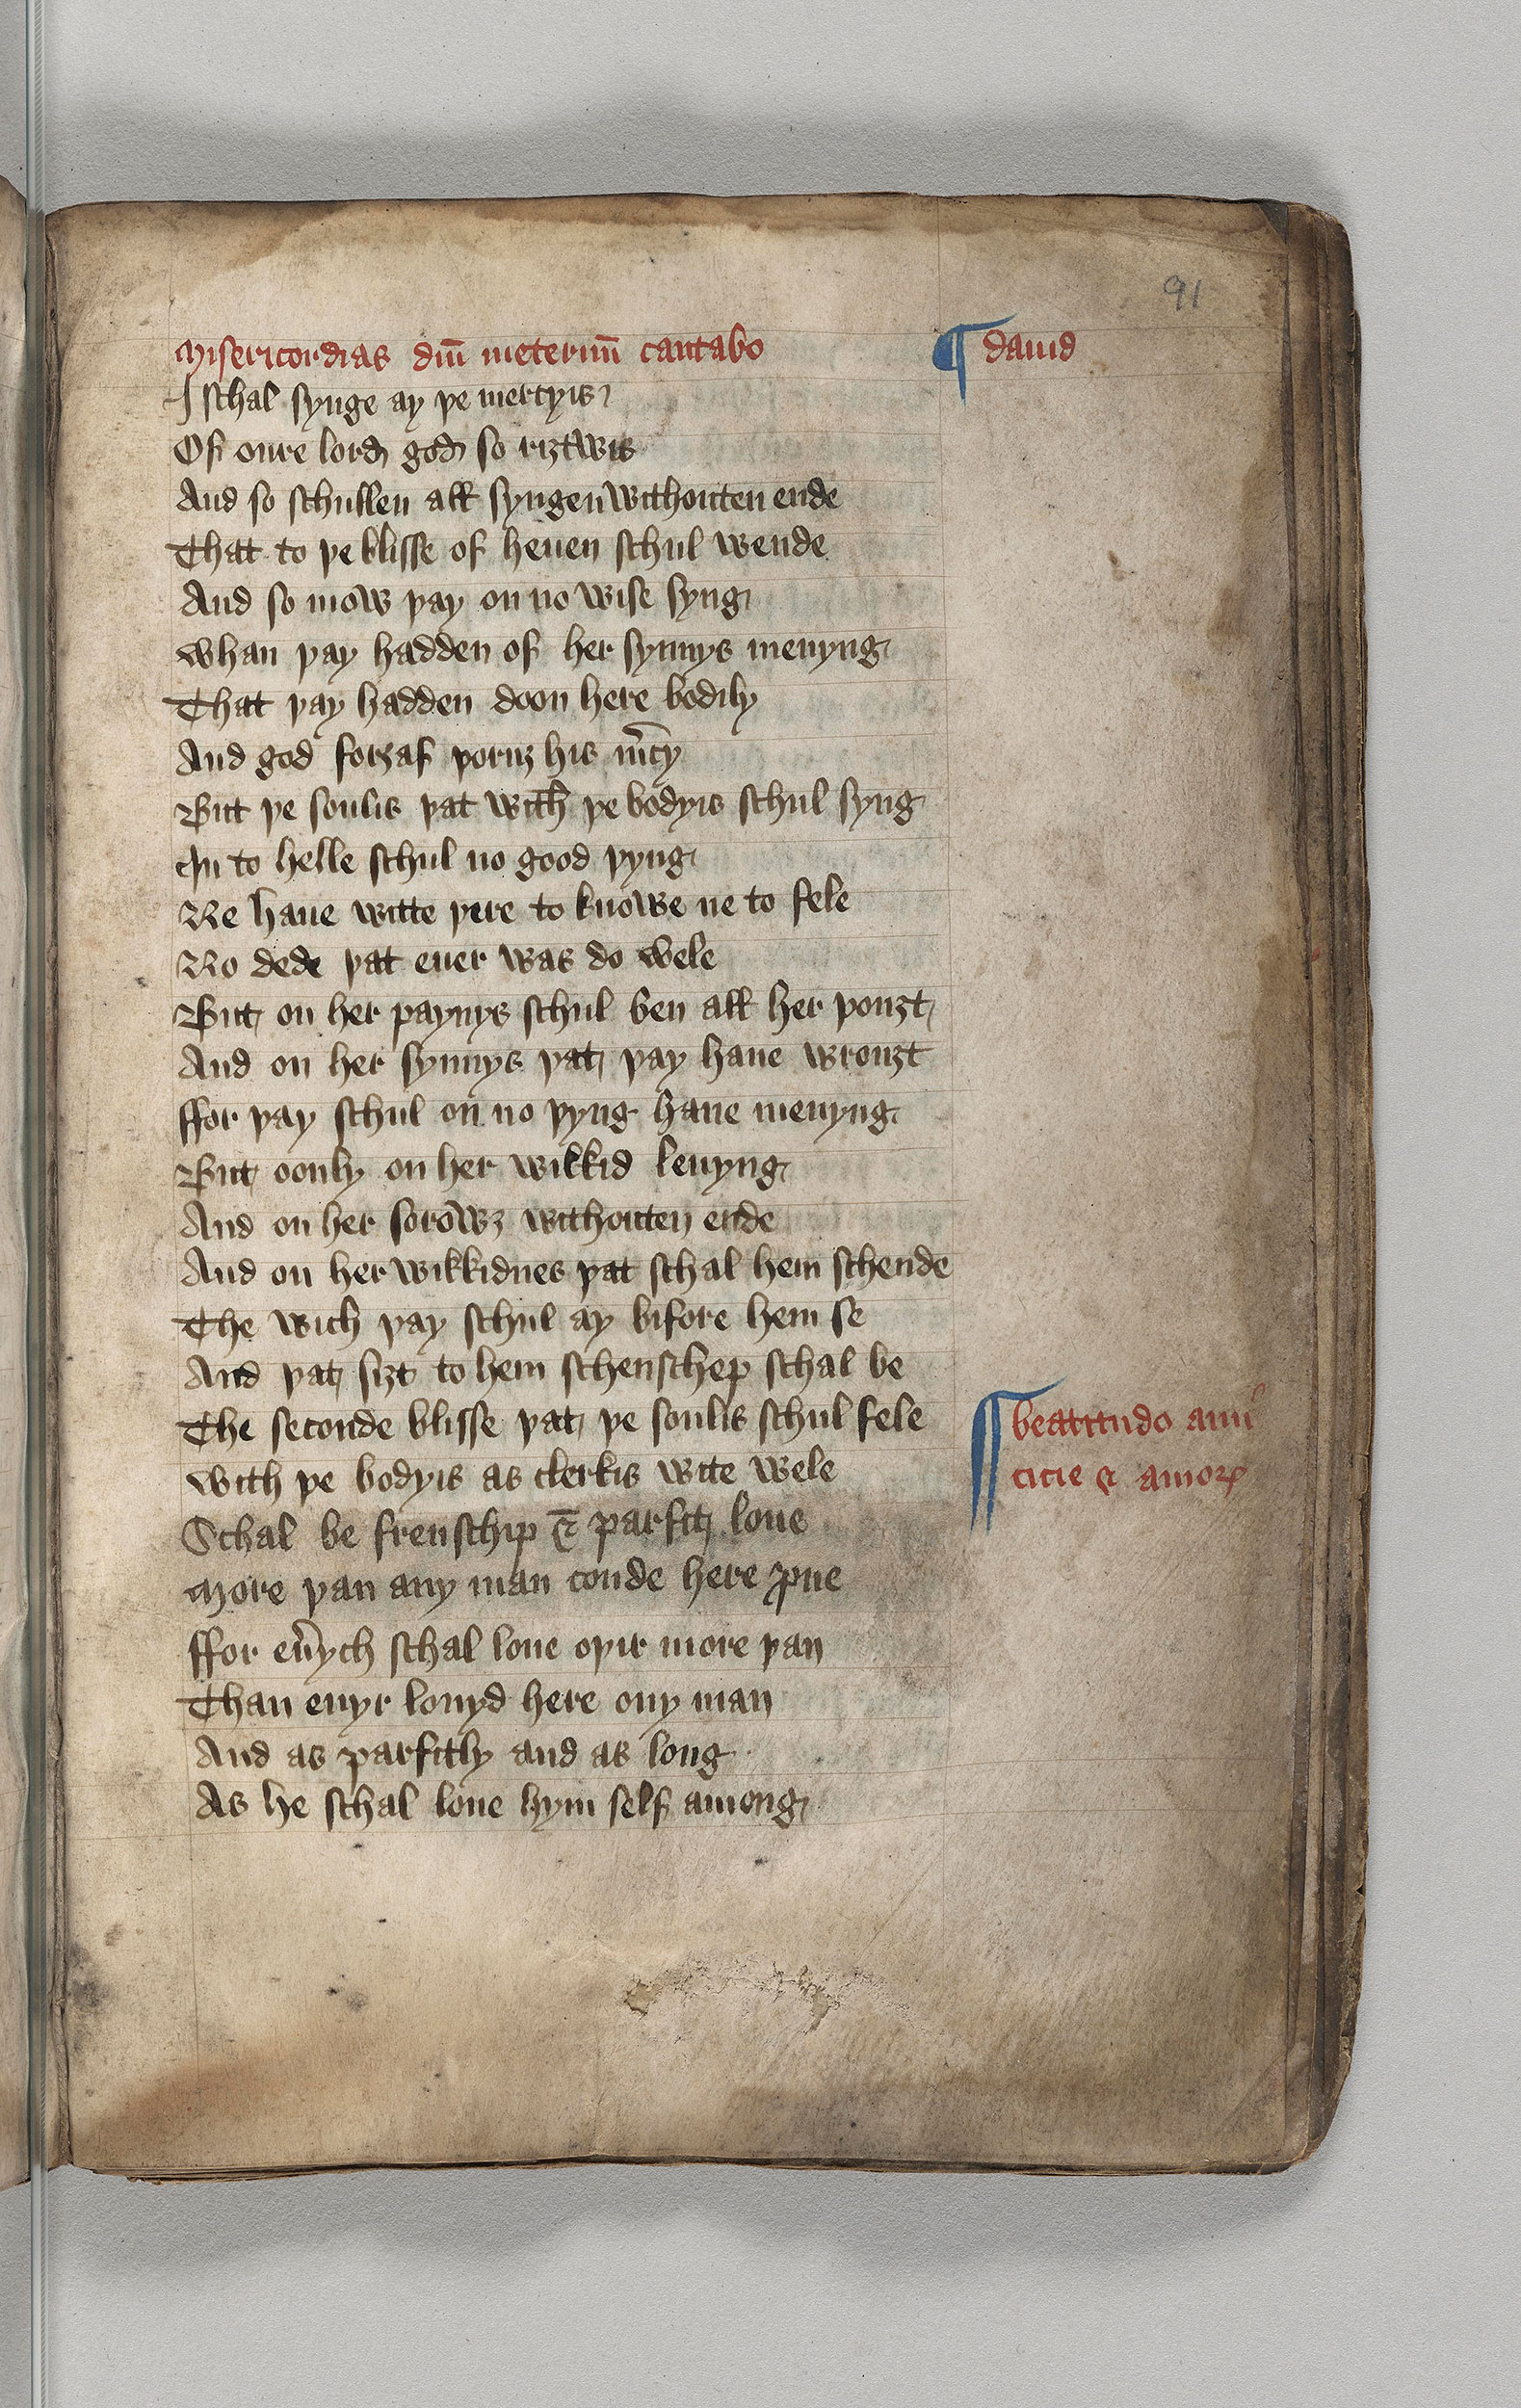 91
Misericordias dm̄ ineternū cantabo
¶ dauid
I schal synge ay þe mercyis
Of oure lord god so riȝtwis
And so schullen all syngen withouten ende
That to þe blisse of heuen schul wende
And so mow þay on no wise syng
Whan þay hadden of her synnys menyng
That þay hadden doon here bodily
And god forȝaf þoruȝ his m̄cy
But þe soulis þat with þe bodyis schul syng
In to helle schul no good þyng
Ne haue witte þere to knowe ne to fele
No dede þat euer was do wele
But on her paynys schul ben all her þouȝt
And on her synnys þat þay haue wrouȝt
ffor þay schul on no þyng haue menyng
But oonly on her wikkid leuyng
And on her sorowȝ withouten ende
And on her wikkidnes þat schal hem schende
The wich þay schul ay bifore hem se
And þat siȝt to hem schenschep schal be
The seconde blisse þat þe soulis schul fele
¶ beatitudo ami
With þe bodyis as clerkis wite wele
cicie & amorꝭ
Schal be frenschip & parfit loue
More þan any man coude here ꝓue
ffor eu̅ych schal loue oþir more þan
Than euyr louyd here ony man
And as parfitly and as long
As he schal loue hym self among